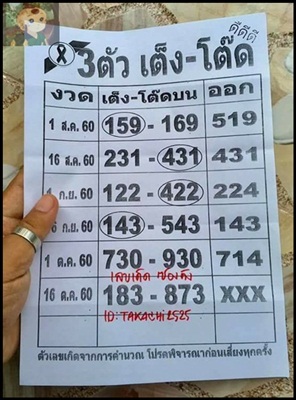 ดีดีดี
3ตัว เต็ง-โต๊ด
งวด เต็ง-โต๊ดบน ออก
1 ส.ค. 60 159 - 169 519
16 ส.ค. 60 231 - 431 431
1 ก.ย. 60 122 - 422 224
6 ก.ย. 60 143 - 543 143
1 ต.ค. 60 730 - 930 714
เลขเด็ด ซองดัง
16 ต.ค. 60 183 - 873 XXX
ID: TAKACHI2525
ตัวเลขเกิดจากการคำนวณ โปรดพิจารณาก่อนเสี่ยงทุกครั้ง